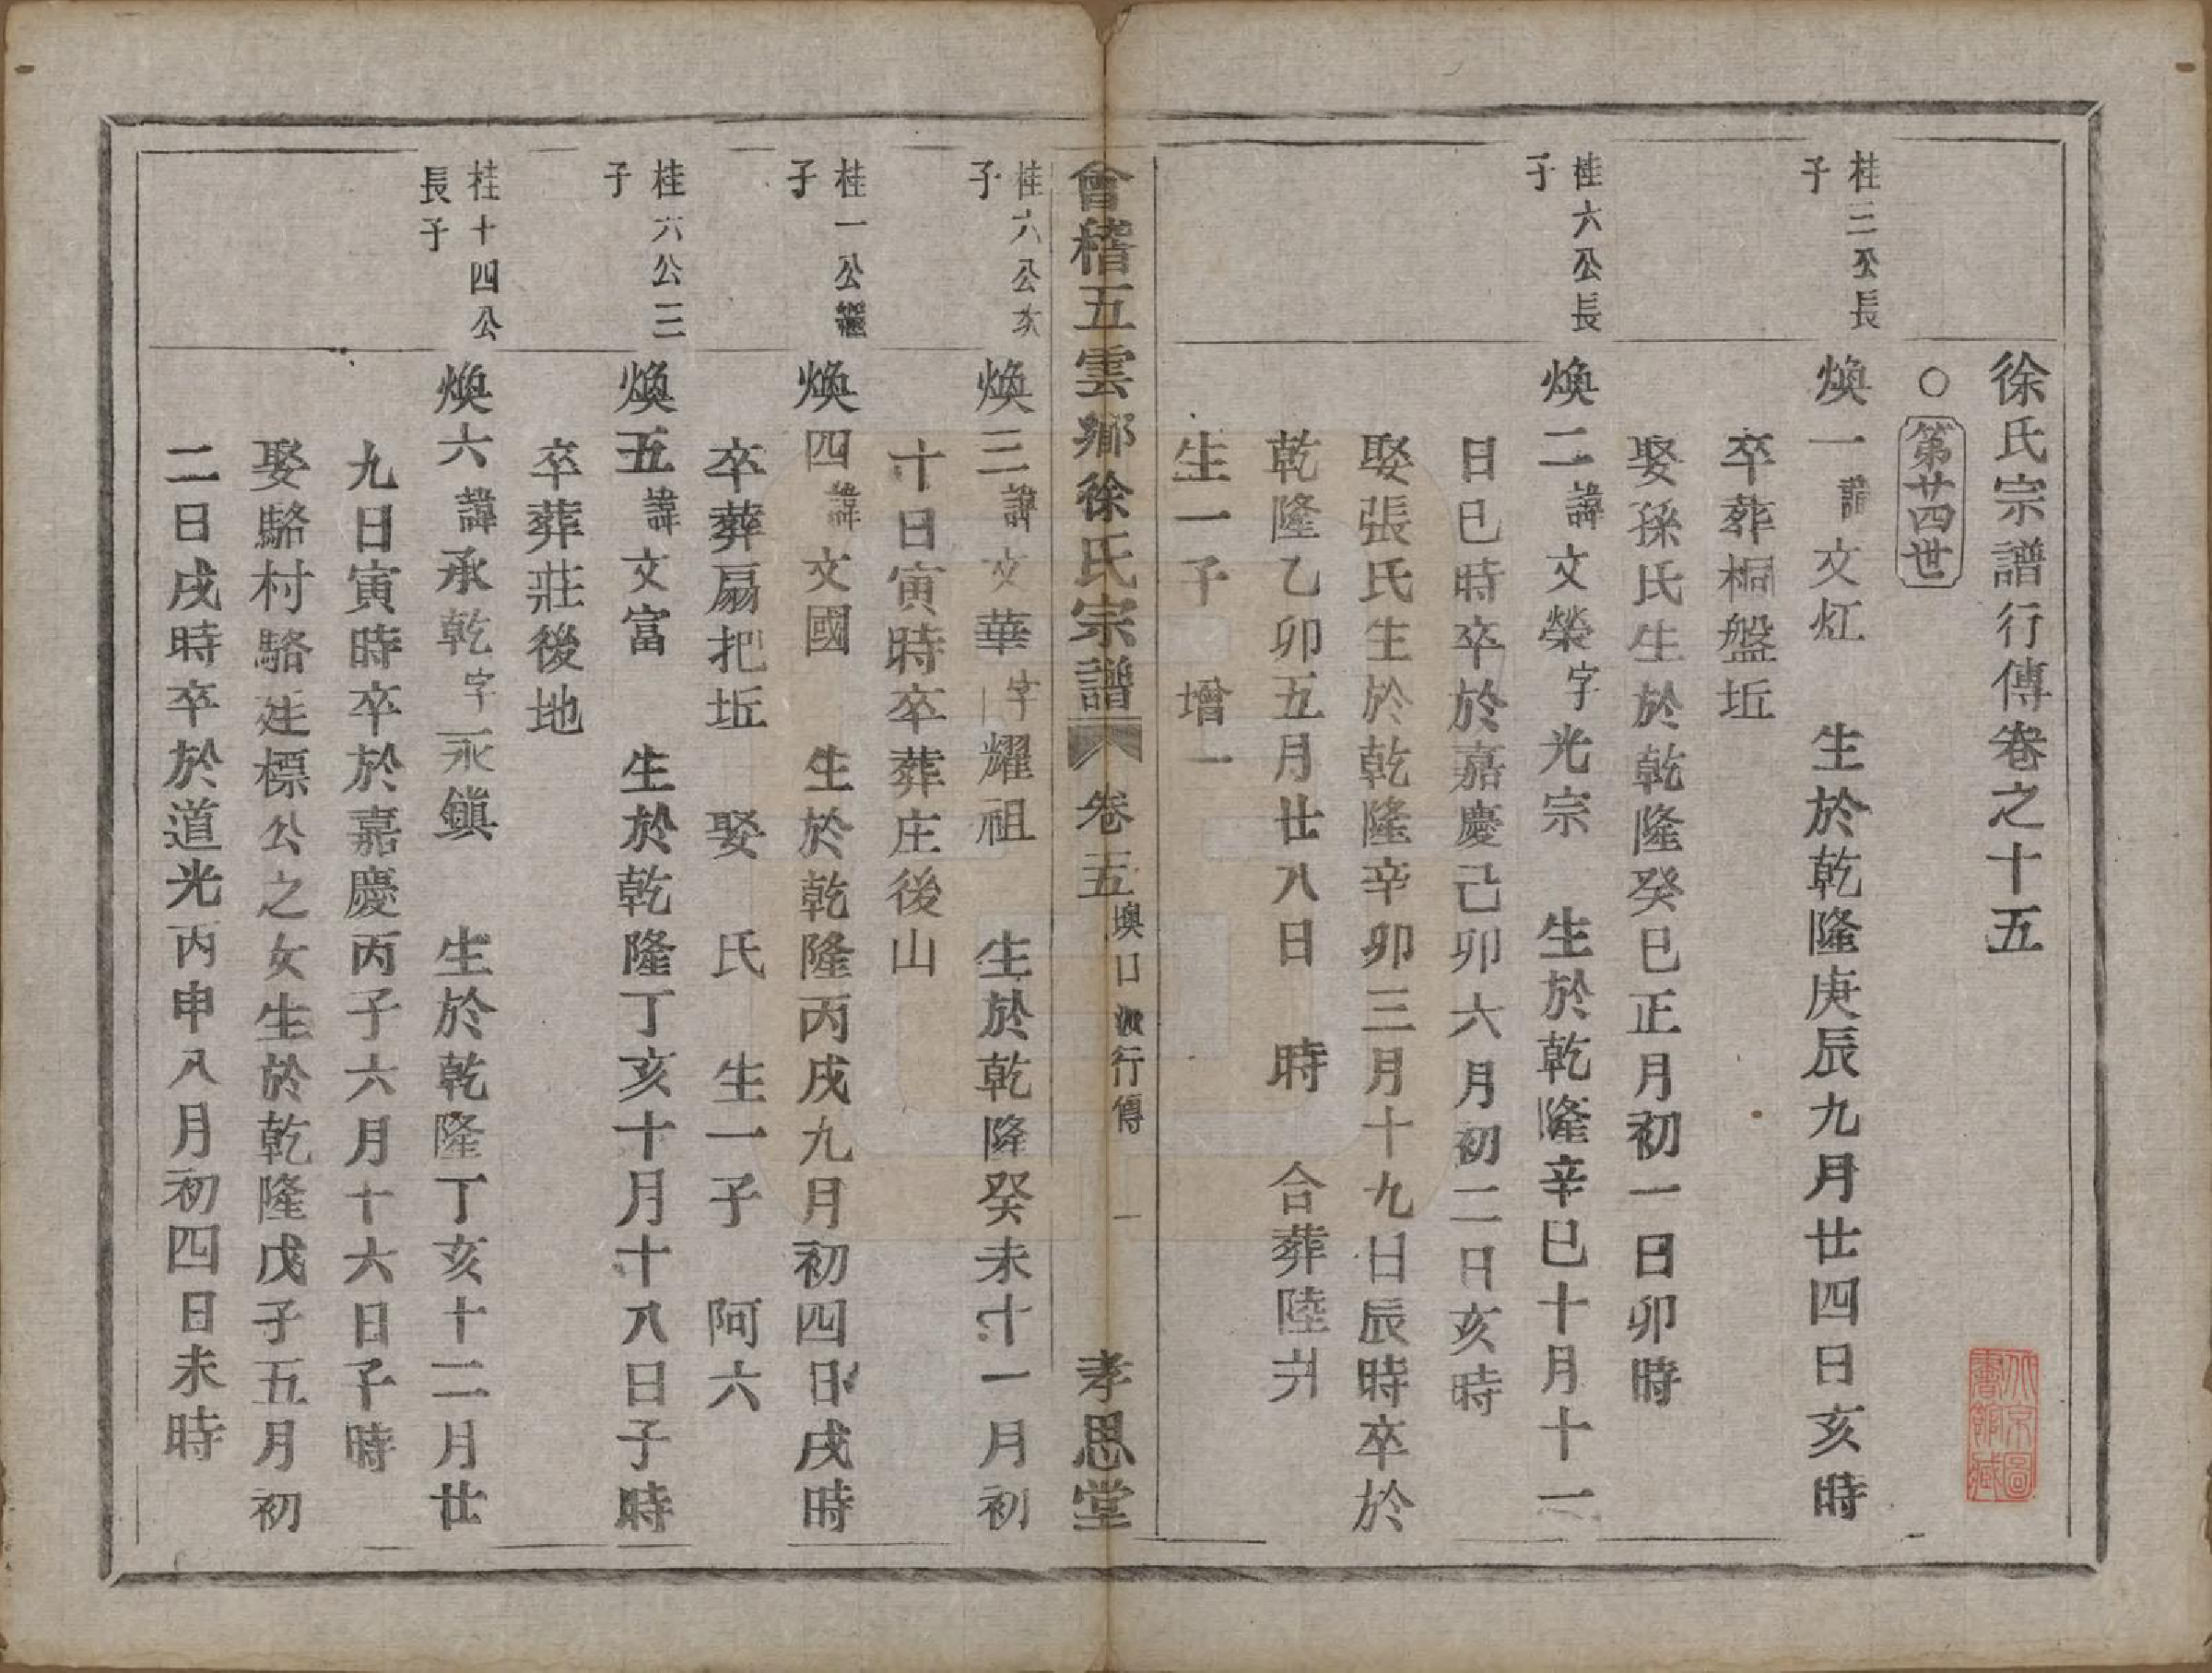 徐氏宗譜行傳卷之十五
○第廿四世
桂三公長
子
煥一諱文灴 生於乾隆庚辰九月廿四日亥時
卒葬桐盤坵
娶孫氏生於乾隆癸巳正月初一日卯時
桂六公長
子
煥二諱文榮字光宗 生於乾隆辛巳十月十一
日巳時卒於嘉慶己卯六月初二日亥時
娶張氏生於乾隆辛卯三月十九日辰時卒於
乾隆乙卯五月廿八日 時 合葬陸
生一子 增一
會稽五雲鄉徐氏宗譜 卷五 墺口派行傳 一 孝思堂
桂六公次
子
煥三諱文華字耀祖 生於乾隆癸未十一月初
十日寅時卒葬庄後山
桂一公繼
子
煥四諱文國 生於乾隆丙戌九月初四日戌時
卒葬扇把坵 娶 氏 生一子 阿六
桂六公三
子
煥五諱文富 生於乾隆丁亥十月十八日子時
卒葬莊後地
桂十四公
長子
煥六諱承乾字永鎮 生於乾隆丁亥十二月廿
九日寅時卒於嘉慶丙子六月十六日子時
娶駱村駱廷標公之女生於乾隆戊子五月初
二日戌時卒於道光丙申八月初四日未時